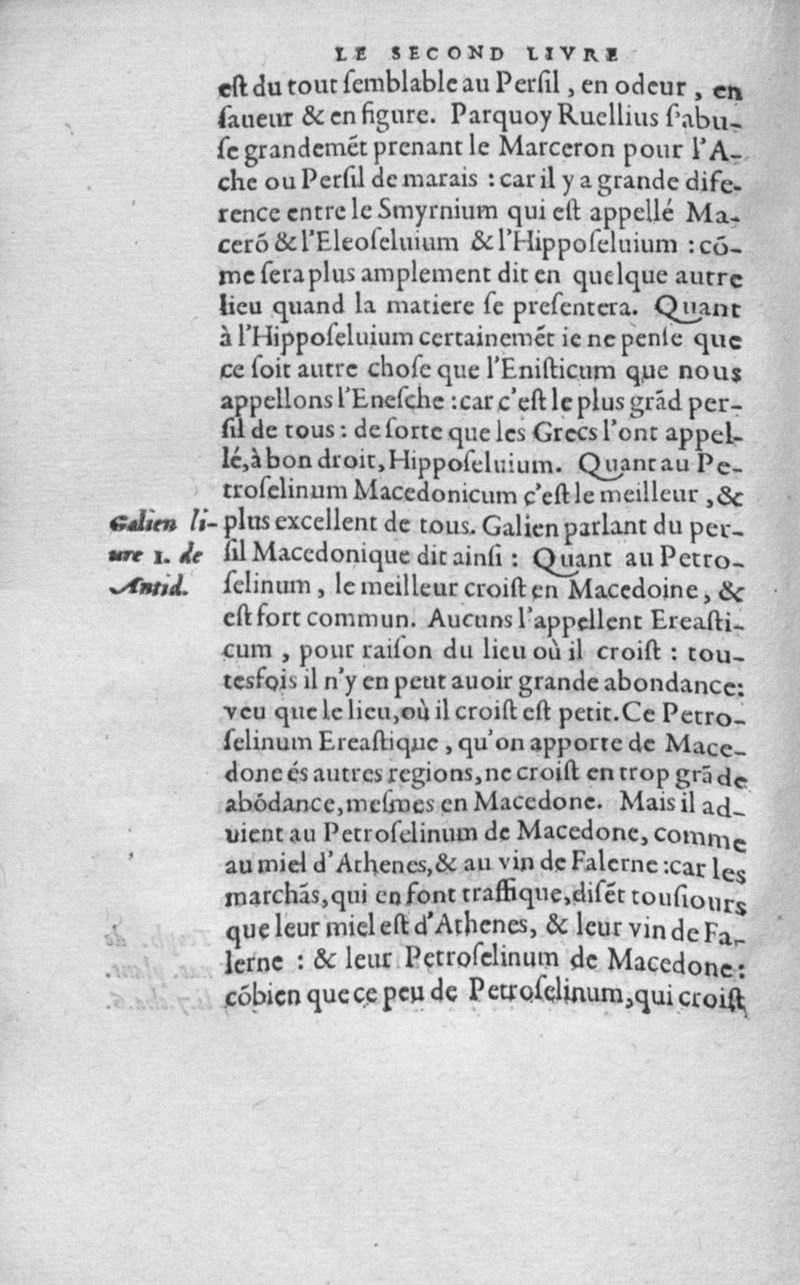 LE SECOND LIVRE
eſt du tout ſemblable au Perſil, en odeur, en
ſaueur & en figure. Parquoy Ruellius ſ'abu-
ſe grandemẽt prenant le Marceron pour l'A-
che ou Perſil de marais : car il y a grande dife-
rence entre le Smyrnium qui eſt appellé Ma-
cerõ & l'Eleoſeluium & l'Hippoſeluium : cõ-
me ſera plus amplement dit en quelque autre
lieu quand la matiere ſe preſentera. Quant
à l'Hippoſeluium certainemẽt ie ne penſe que
ce ſoit autre choſe que l'Eniſticum que nous
appellons l'Eneſche : car c'eſt le plus grãd per-
ſil de tous : de ſorte que les Grecs l'ont appel-
lé, à bon droit, Hippoſeluium. Quant au Pe-
troſelinum Macedonicum c'eſt le meilleur, &
Galien li- plus excellent de tous. Galien parlant du per-
ure 1. de ſil Macedonique dit ainſi : Quant au Petro-
Antid. ſelinum, le meilleur croiſt en Macedoine, &
eſt fort commun. Aucuns l'appellent Ereaſti-
cum, pour raiſon du lieu où il croiſt : tou-
tesfois il n'y en peut auoir grande abondance:
veu que le lieu, où il croiſt eſt petit. Ce Petro-
ſelinum Ereaſtique, qu'on apporte de Mace-
done és autres regions, ne croiſt en trop grãde
abõdance, meſmes en Macedone. Mais il ad-
uient au Petroſelinum de Macedone, comme
au miel d'Athenes, & au vin de Falerne : car les
marchãs, qui en font traffique, diſẽt touſiours
que leur miel eſt d'Athenes, & leur vin de Fa-
lerne : & leur Petroſelinum de Macedone:
cõbien que ce peu de Petroſelinum, qui croiſt